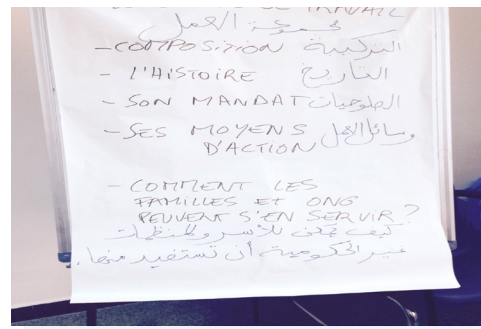 DE TRAVAIL
مجموعة العمل
- COMPOSITION التركيبة
- L'HISTOIRE التاريخ
- SON MANDAT الصلوحيات
- SES MOYENS وسائل العمل
D'ACTION
- COMMENT LES
FAMILLES ET ONG
PEUVENT S'EN SERVIR ?
كيف يمكن للأسر والمنظمات
غير الحكومية أن تستفيد منها.